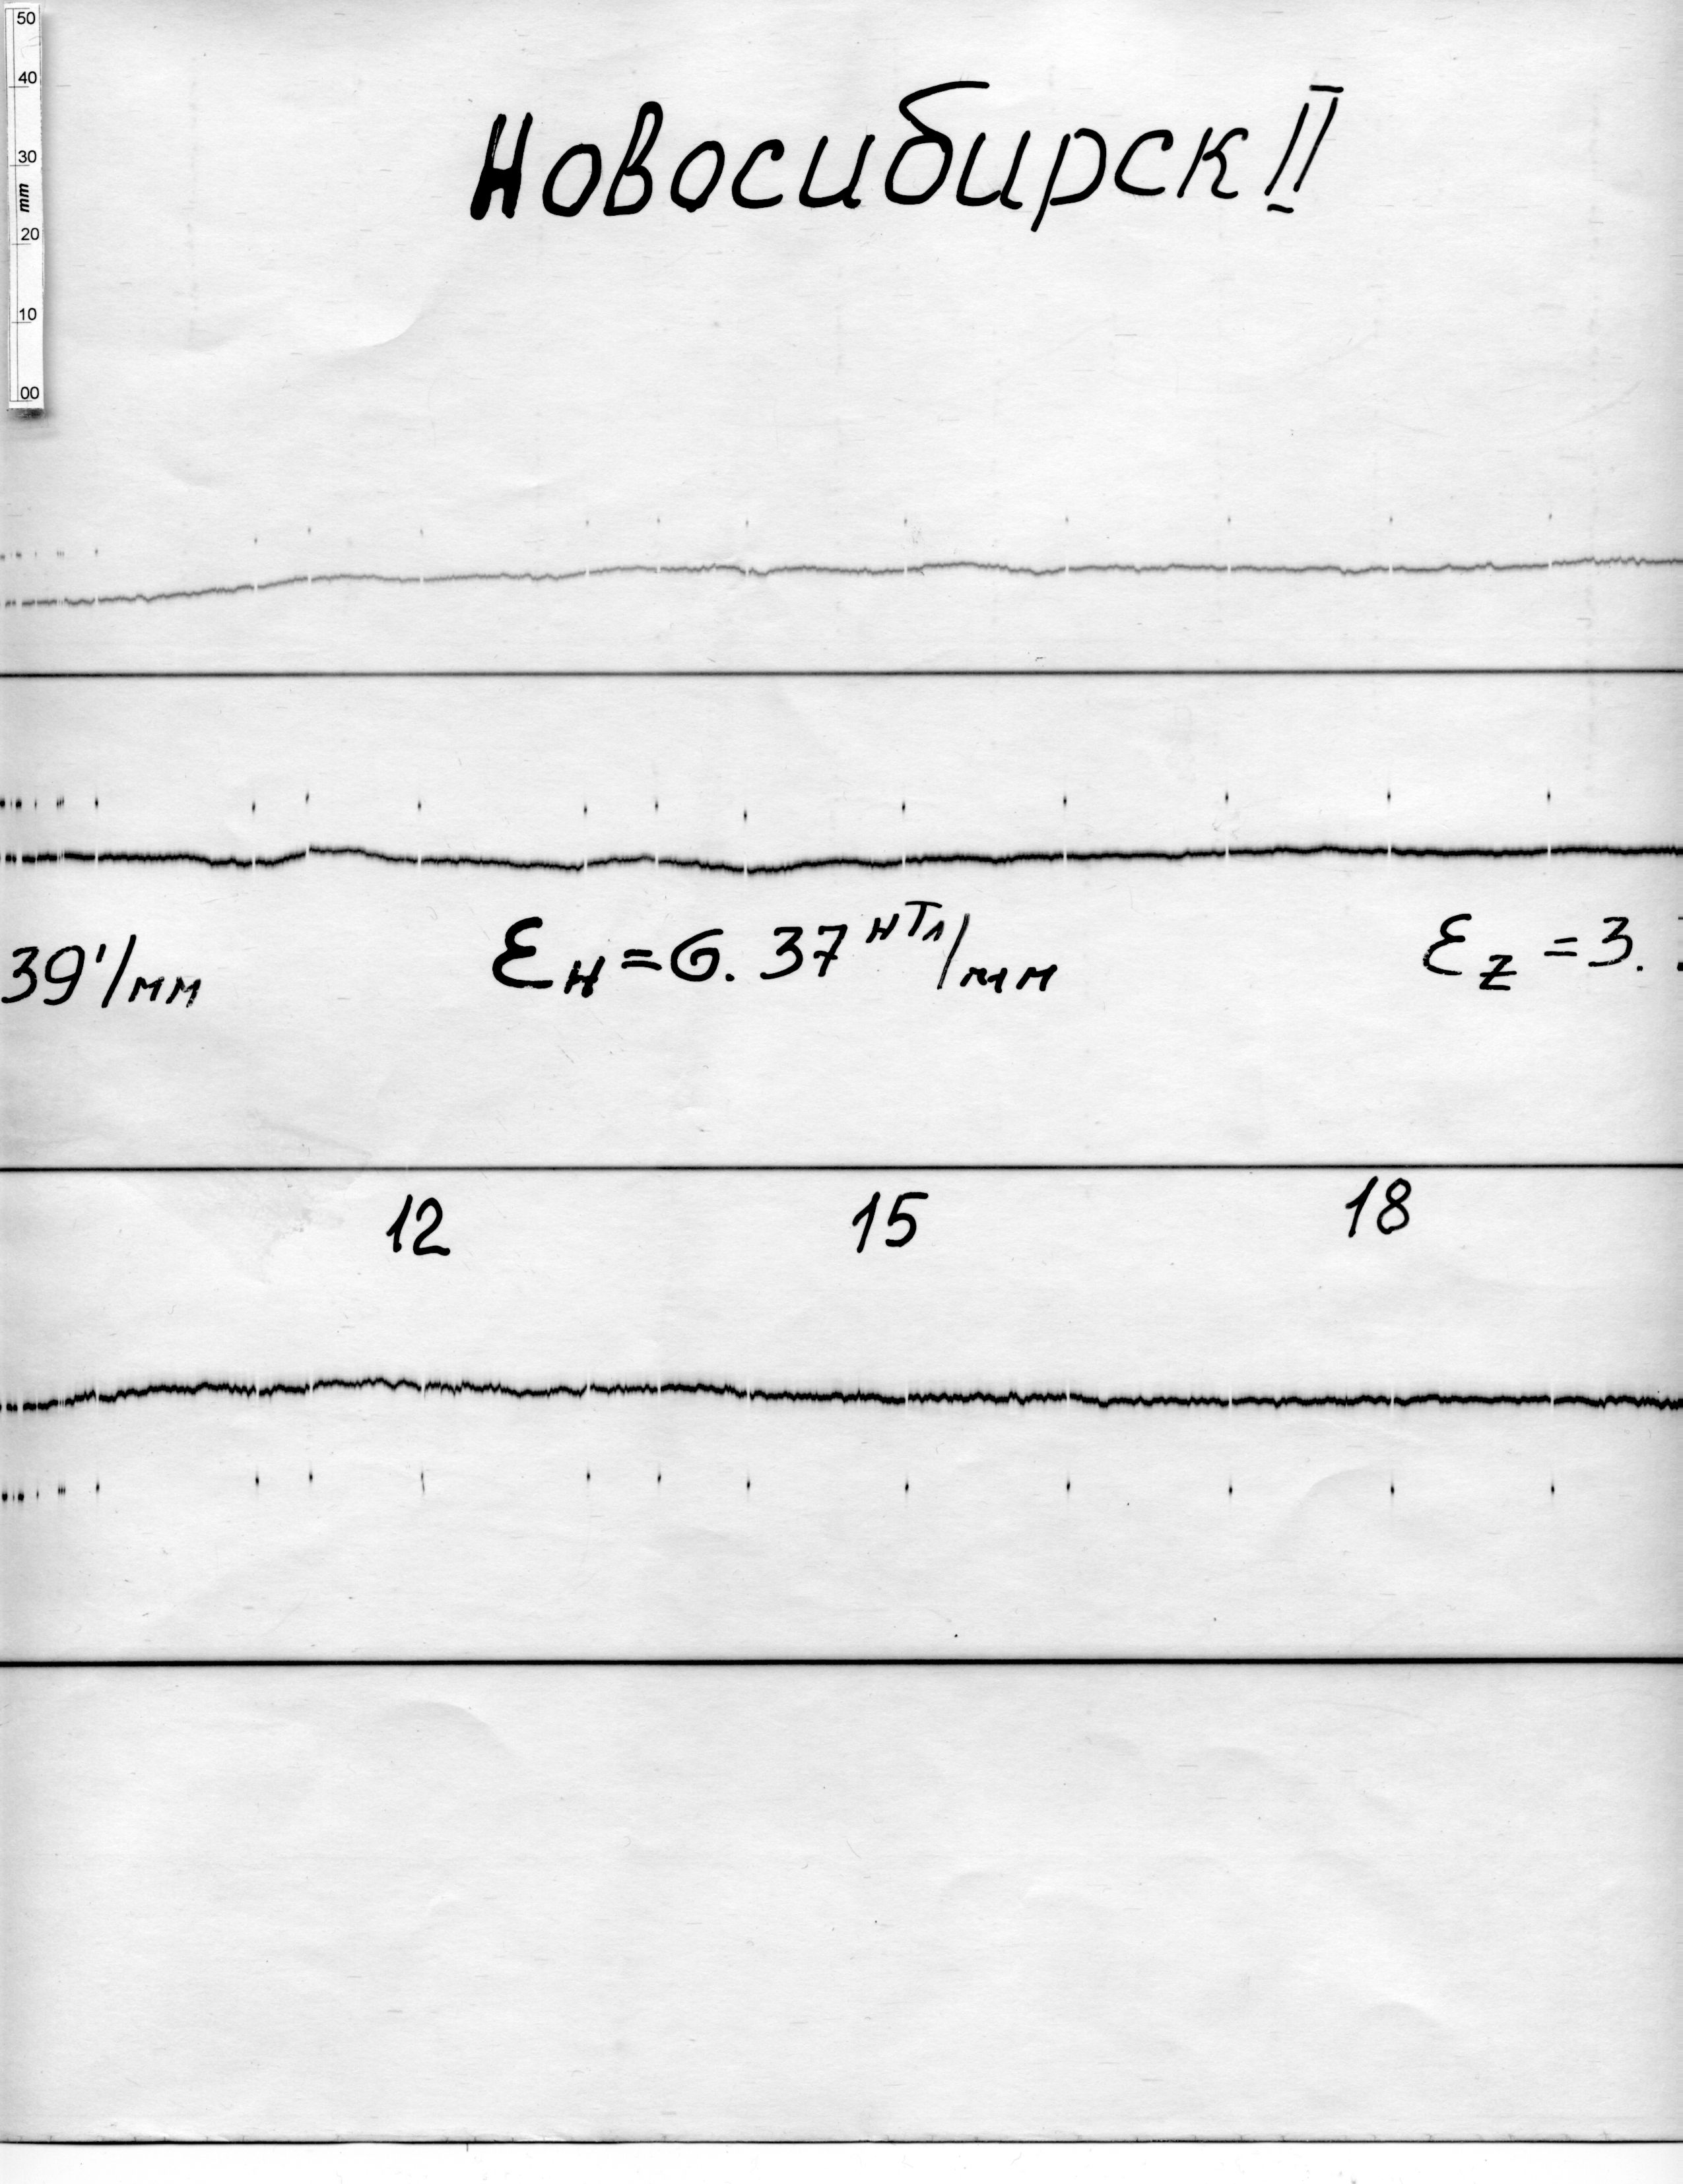 50
40
30
mm
20
10
00
Новосибирск II
39'/мм
εH = 6.37 нТл/мм
εZ = 3.
12 15 18